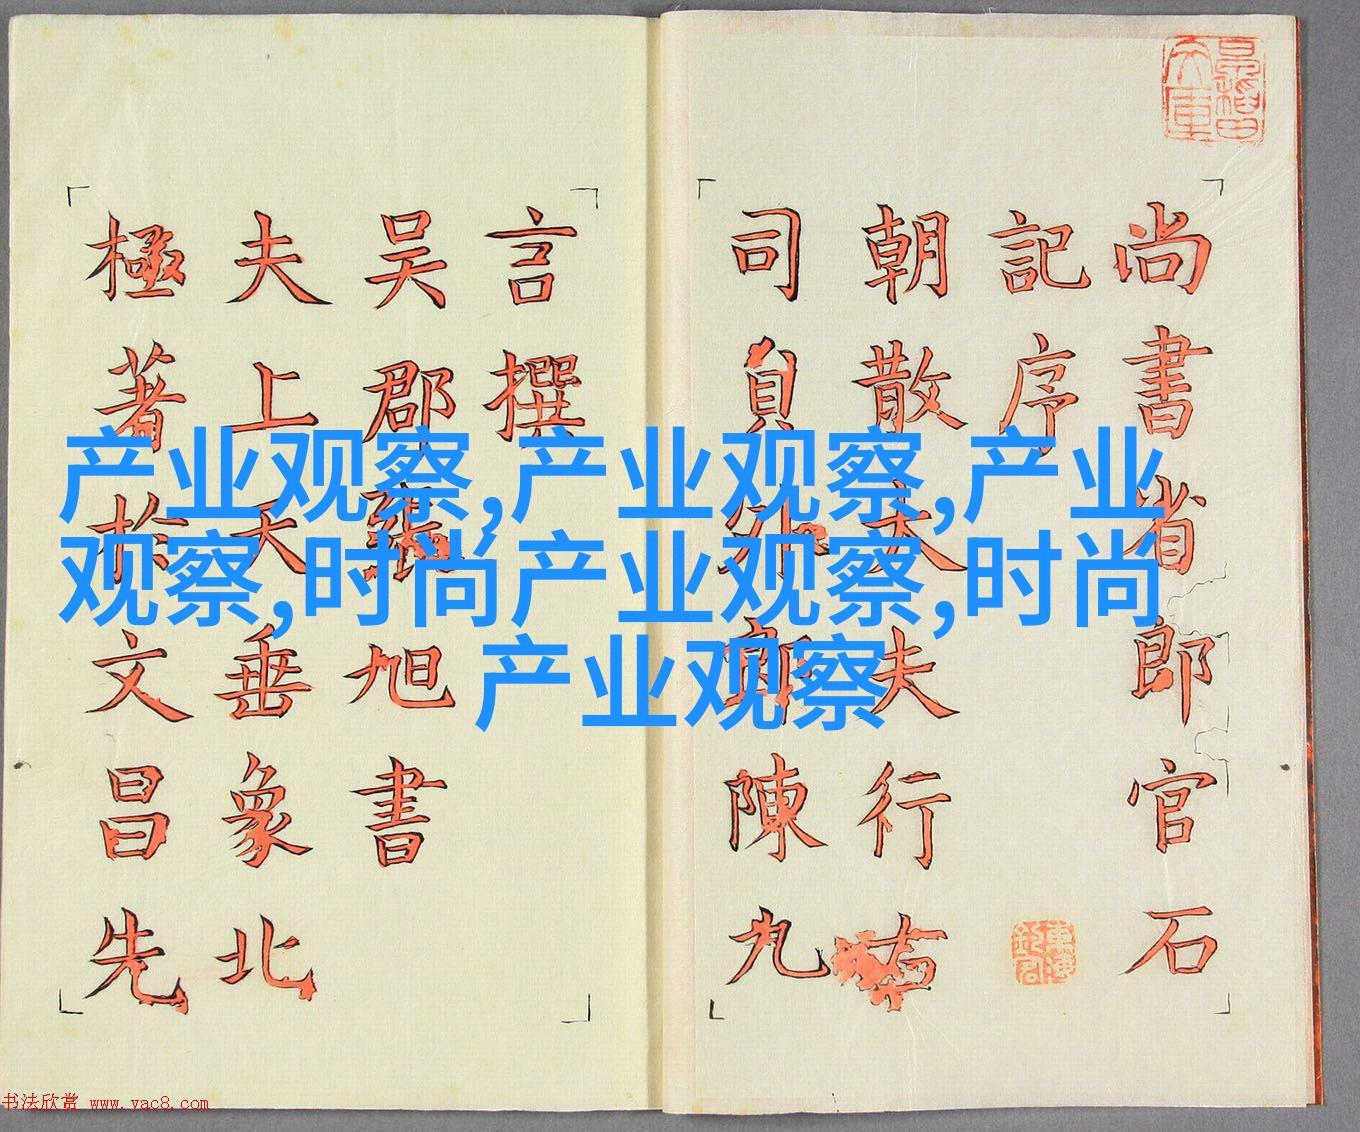 尚書省郎官石
記序
朝散大夫行右
司員外郎陳九
言撰
吴郡張旭書
夫上天垂象北
極著於文昌先
产业观察,产业观察,产业
观察,时尚产业观察,时尚
产业观察
书法欣赏 www.yac8.com